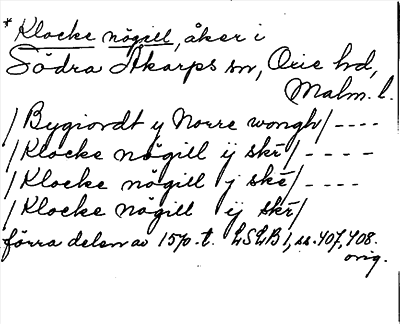 * Klocke nögill, åker i
Södra Åkarps sn, Oxie hd,
Malm. l.
/Bygiordt y Norre wongh/----
/Klocke nögill ij skr/----
/Klocke nögill j ske/----
/Klocke nögill ij skr/
förra delen av 1570-t. LSLB 1, ss. 407, 408.
orig.